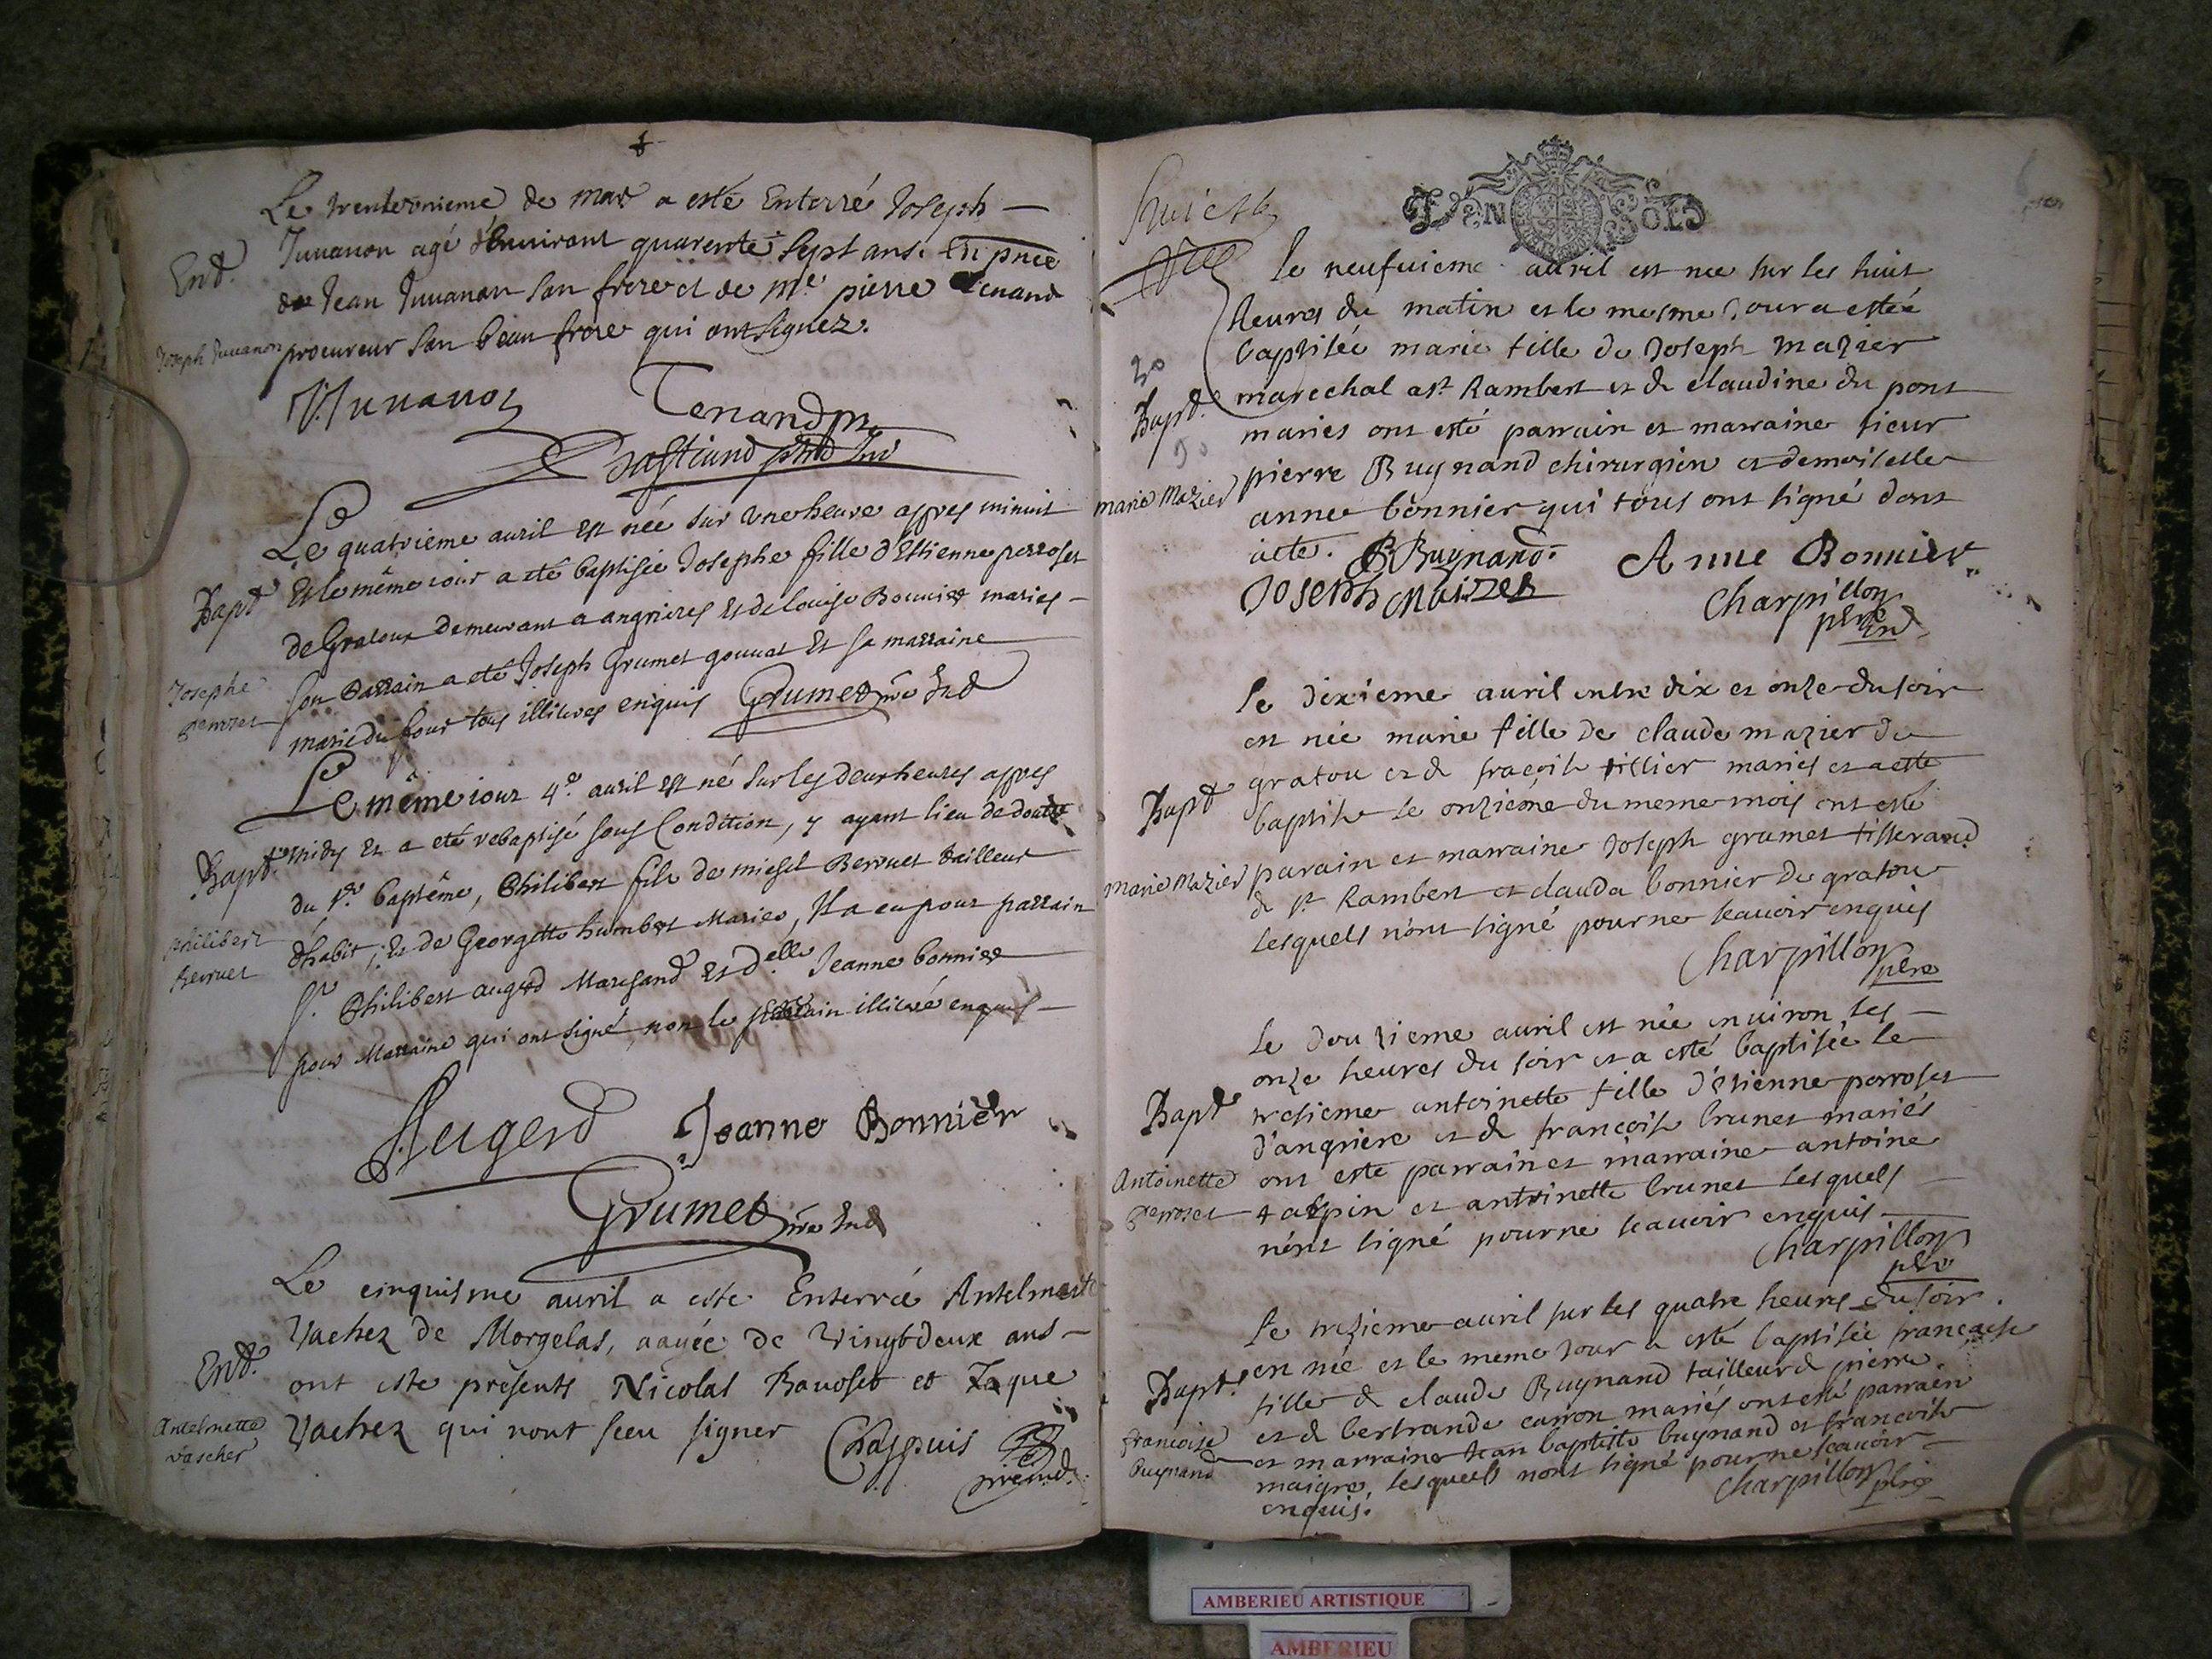 Le trenteunieme de mars a esté Enterré Joseph
Ent.
Juuanon agé d'Enuiront quarente sept ans. En pnce
de Jean Juuanon son frere et de me. pierre Tenand
Joseph Juuanon
procureur son beau frere qui ont signez.
Juuanon Tenand
Bastiand
Le quatrieme auril Est née sur une heure appres minuit
Bapt
Et le même iour a eté baptisée Josephe fille d'Estienne perroset
de Gratoux demeurant a angrieres Et de louise Bonnier maries
Josephe
perroset
son Parrain a eté Joseph Grumet gouuat Et sa marraine
marie du four tous illitires enquis Grumet
Le même iour 4e. auril Est né sur les deux heures appres
Bapt.
midy Et a eté rebaptisé sous Condition, y ayant lieu de doute
du 1er. baptême, Philibert fils de michel Berruet tailleur
philibert
Berruet
d'habit, Et de Georgette humbert Maries, Il a eu pour parrain
Sr. Philibert augerd Marchand Et delle. Jeanne bonnier
pour Marraine qui ont signé non le parrain illitiré enquis
Augerd Jeanne Bonnier
Grumet
Le cinquisme auril a esté Enterrée Antelmeste
Vachez de Morgelas, aagée de Vingtdeux ans
Ent.
ont esté présents Nicolas Rauoset et Jaque
Antelmette
vascher
Vachez qui nont sceu signer Chappuis
huict
Le neufuieme auril est née sur les huit
heures du matin et le mesme Jour a estée
baptisée marie fille de Joseph mazier
20
Bapt.
marechal a st. Rambert et de claudine du pont
mariés ont esté parrain et marraine sieur
marie Mazier
pierre Bugnand chirurgien et demoiselle
anne bonnier qui tous ont signé dont
acte. Bugnand. Anne Bonnier
Joseph Maizer Charpillon
ptre
Le dixieme auril entre dix et onze du soir
est née marie fille de claude mazier de
Bapt
gratou et de fraçoise tillier mariés et a esté
baptisée le onzieme du meme mois ont esté
marie Mazier
parain et marraine Joseph grumet tisserand
de st. Rambert et clauda bonnier de gratou
lesquels n'ont signé pour ne scauoir enquis
Charpillon
ptre
Le douzieme auril est née enuiron les
onze heures du soir et a esté baptisée le
Bapt
tresieme antoinette fille d'etienne perroset
d'angriere et de francoise brunet mariés
Antoinette
perroset
ont esté parrain et marraine antoine
et antoinette brunet lesquels
n'ont signé pour ne scauoir enquis
Charpillon
ptre
Le trezieme auril sur les quatre heures du soir
Bapt.
est née et le meme Jour a esté baptisée françoise
fille de claude Bugnand tailleur de pierre
et de bertrande carron mariés ont esté parrain
francoise
Bugnand
et marraine Jean baptiste bugnand et francoise
maigre, lesquels n'ont signé pour ne scauoir
enquis. Charpillon ptre
AMBERIEU ARTISTIQUE
AMBERIEU